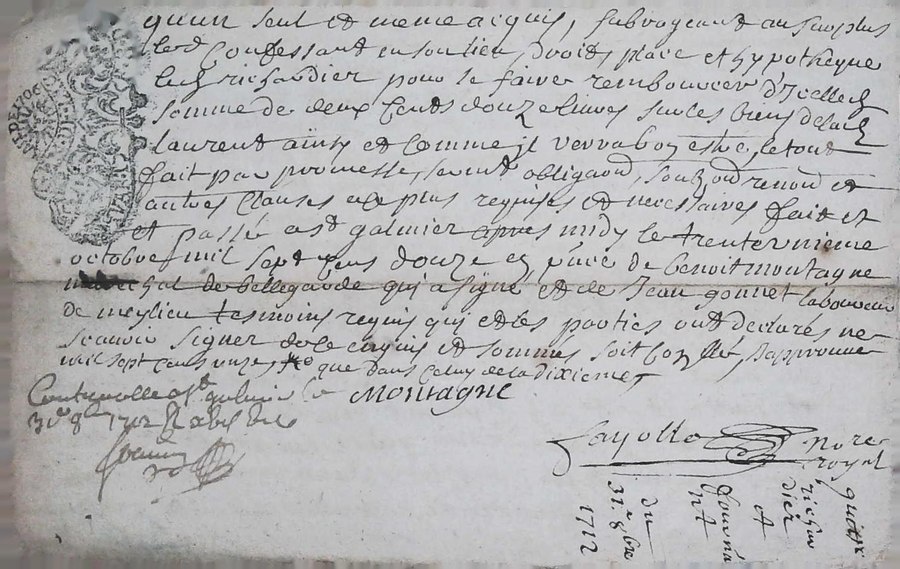 qu'un seul et meme acquis, subrogeant au surplus
led Confessant en son lieu, droit, place et hypotheque
led richardier pour se faire rembourcer d'Icelle
somme de deux Cents douze livres sur les biens dela
laurent ainsy et Comme il verra bon estre, le tout
fait par promesse, serment obligaon, renon et
autres Clauses a ce plus requises et necessaires fait et
et passé a st galmier apres midy le trente unieme
octobre mil sept Cens douze en p'nce de benoit montagne
mareschal de bellegarde qui a signé et de Jean gonnet laboureur
de meylieu tesmoins requis qui et les parties ont declarés ne
scavoir signer de ce enquis et sommés soit Conllé, J'approuve
mil sept Cents onze, que dans Celuy de la dixieme
Contrerolle a st galmier le
31e 8bre 1712
Montagne
fayolle nore
royal
quitt
richar
dier
A
du
31e 8bre
1712